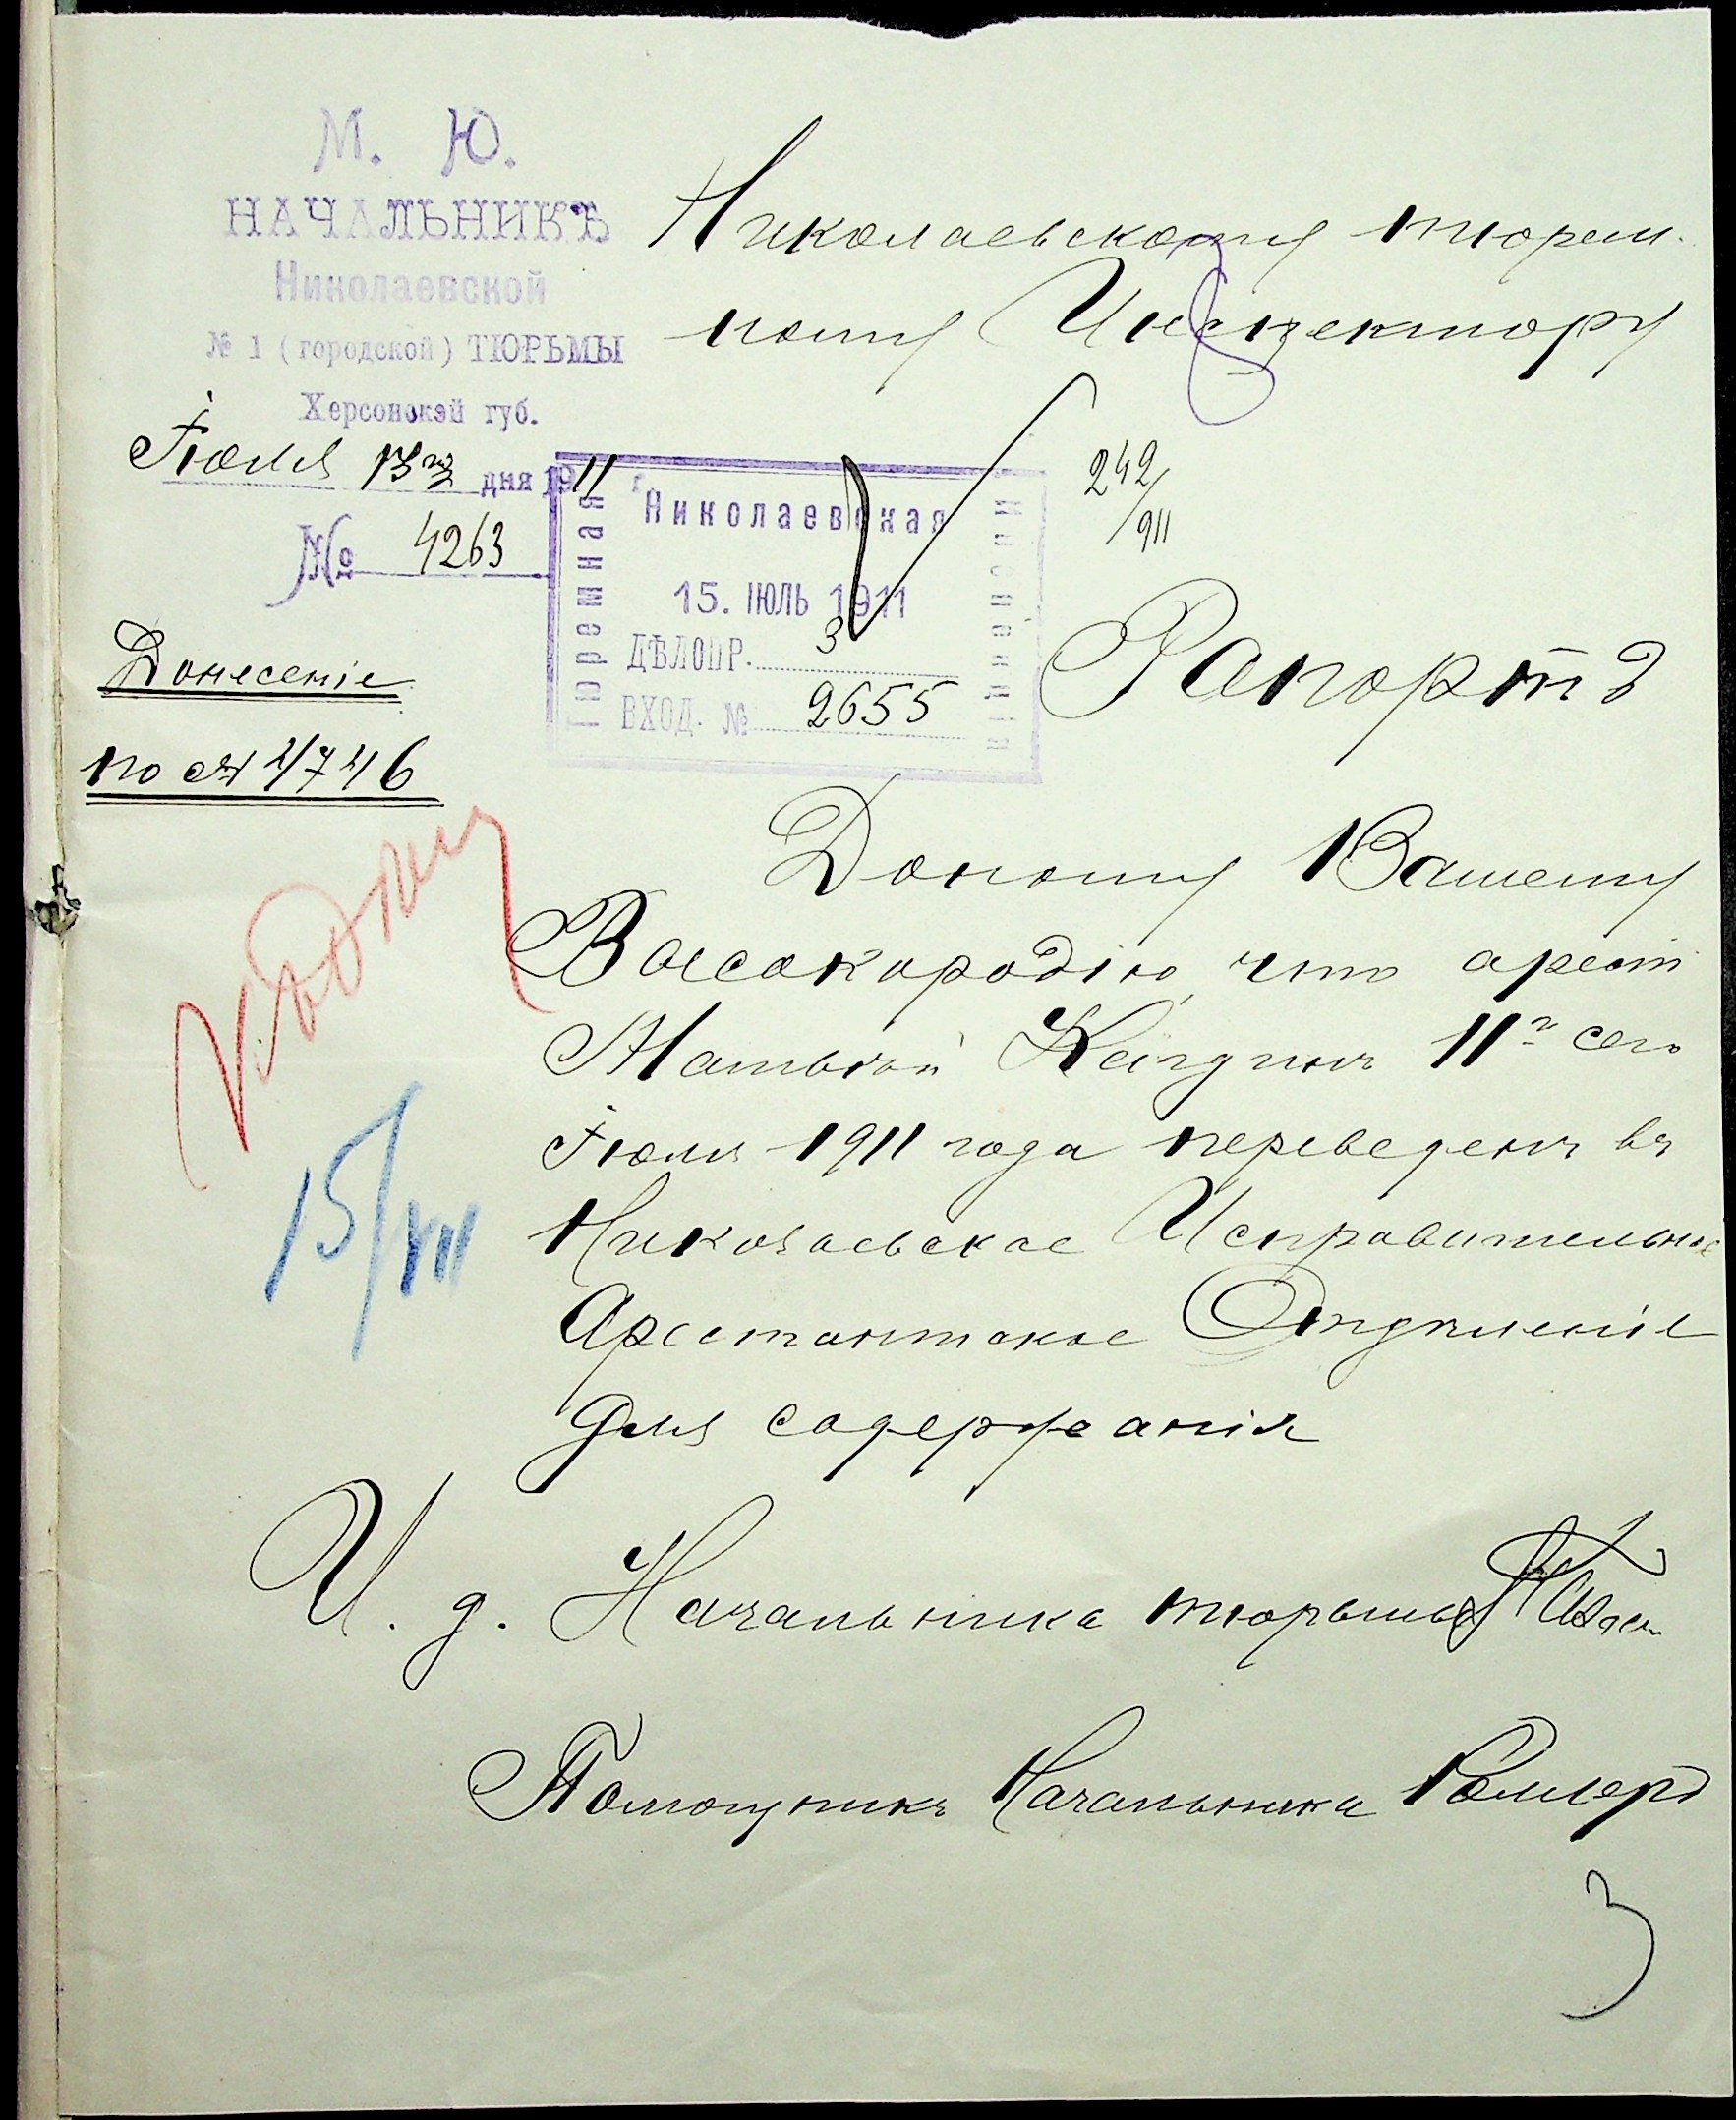 М. Ю.
НАЧАЛЬНИКЪ
Николаевской
№ 1 (городской) ТЮРЬМЫ
Херсонской губ.
Іюля 13 дня 1911 г.
№ 4263
Донесеніе
по № 4746
Николаевскому тюрем-
ному Инспектору
242/911
Николаевская
Тюремная
Инспекція
15. ІЮЛЬ 1911
ДѢЛОПР. 3
ВХОД. № 2655
Рапортъ
Доношу Вашему
Высокородію, что арест.
11го сего
Іюля 1911 года переведенъ въ
Николаевское Исправительное
Арестантское Отдѣленіе
для содержанія
15/VII
И. д. Начальника тюрьмы
Помощникъ Начальника